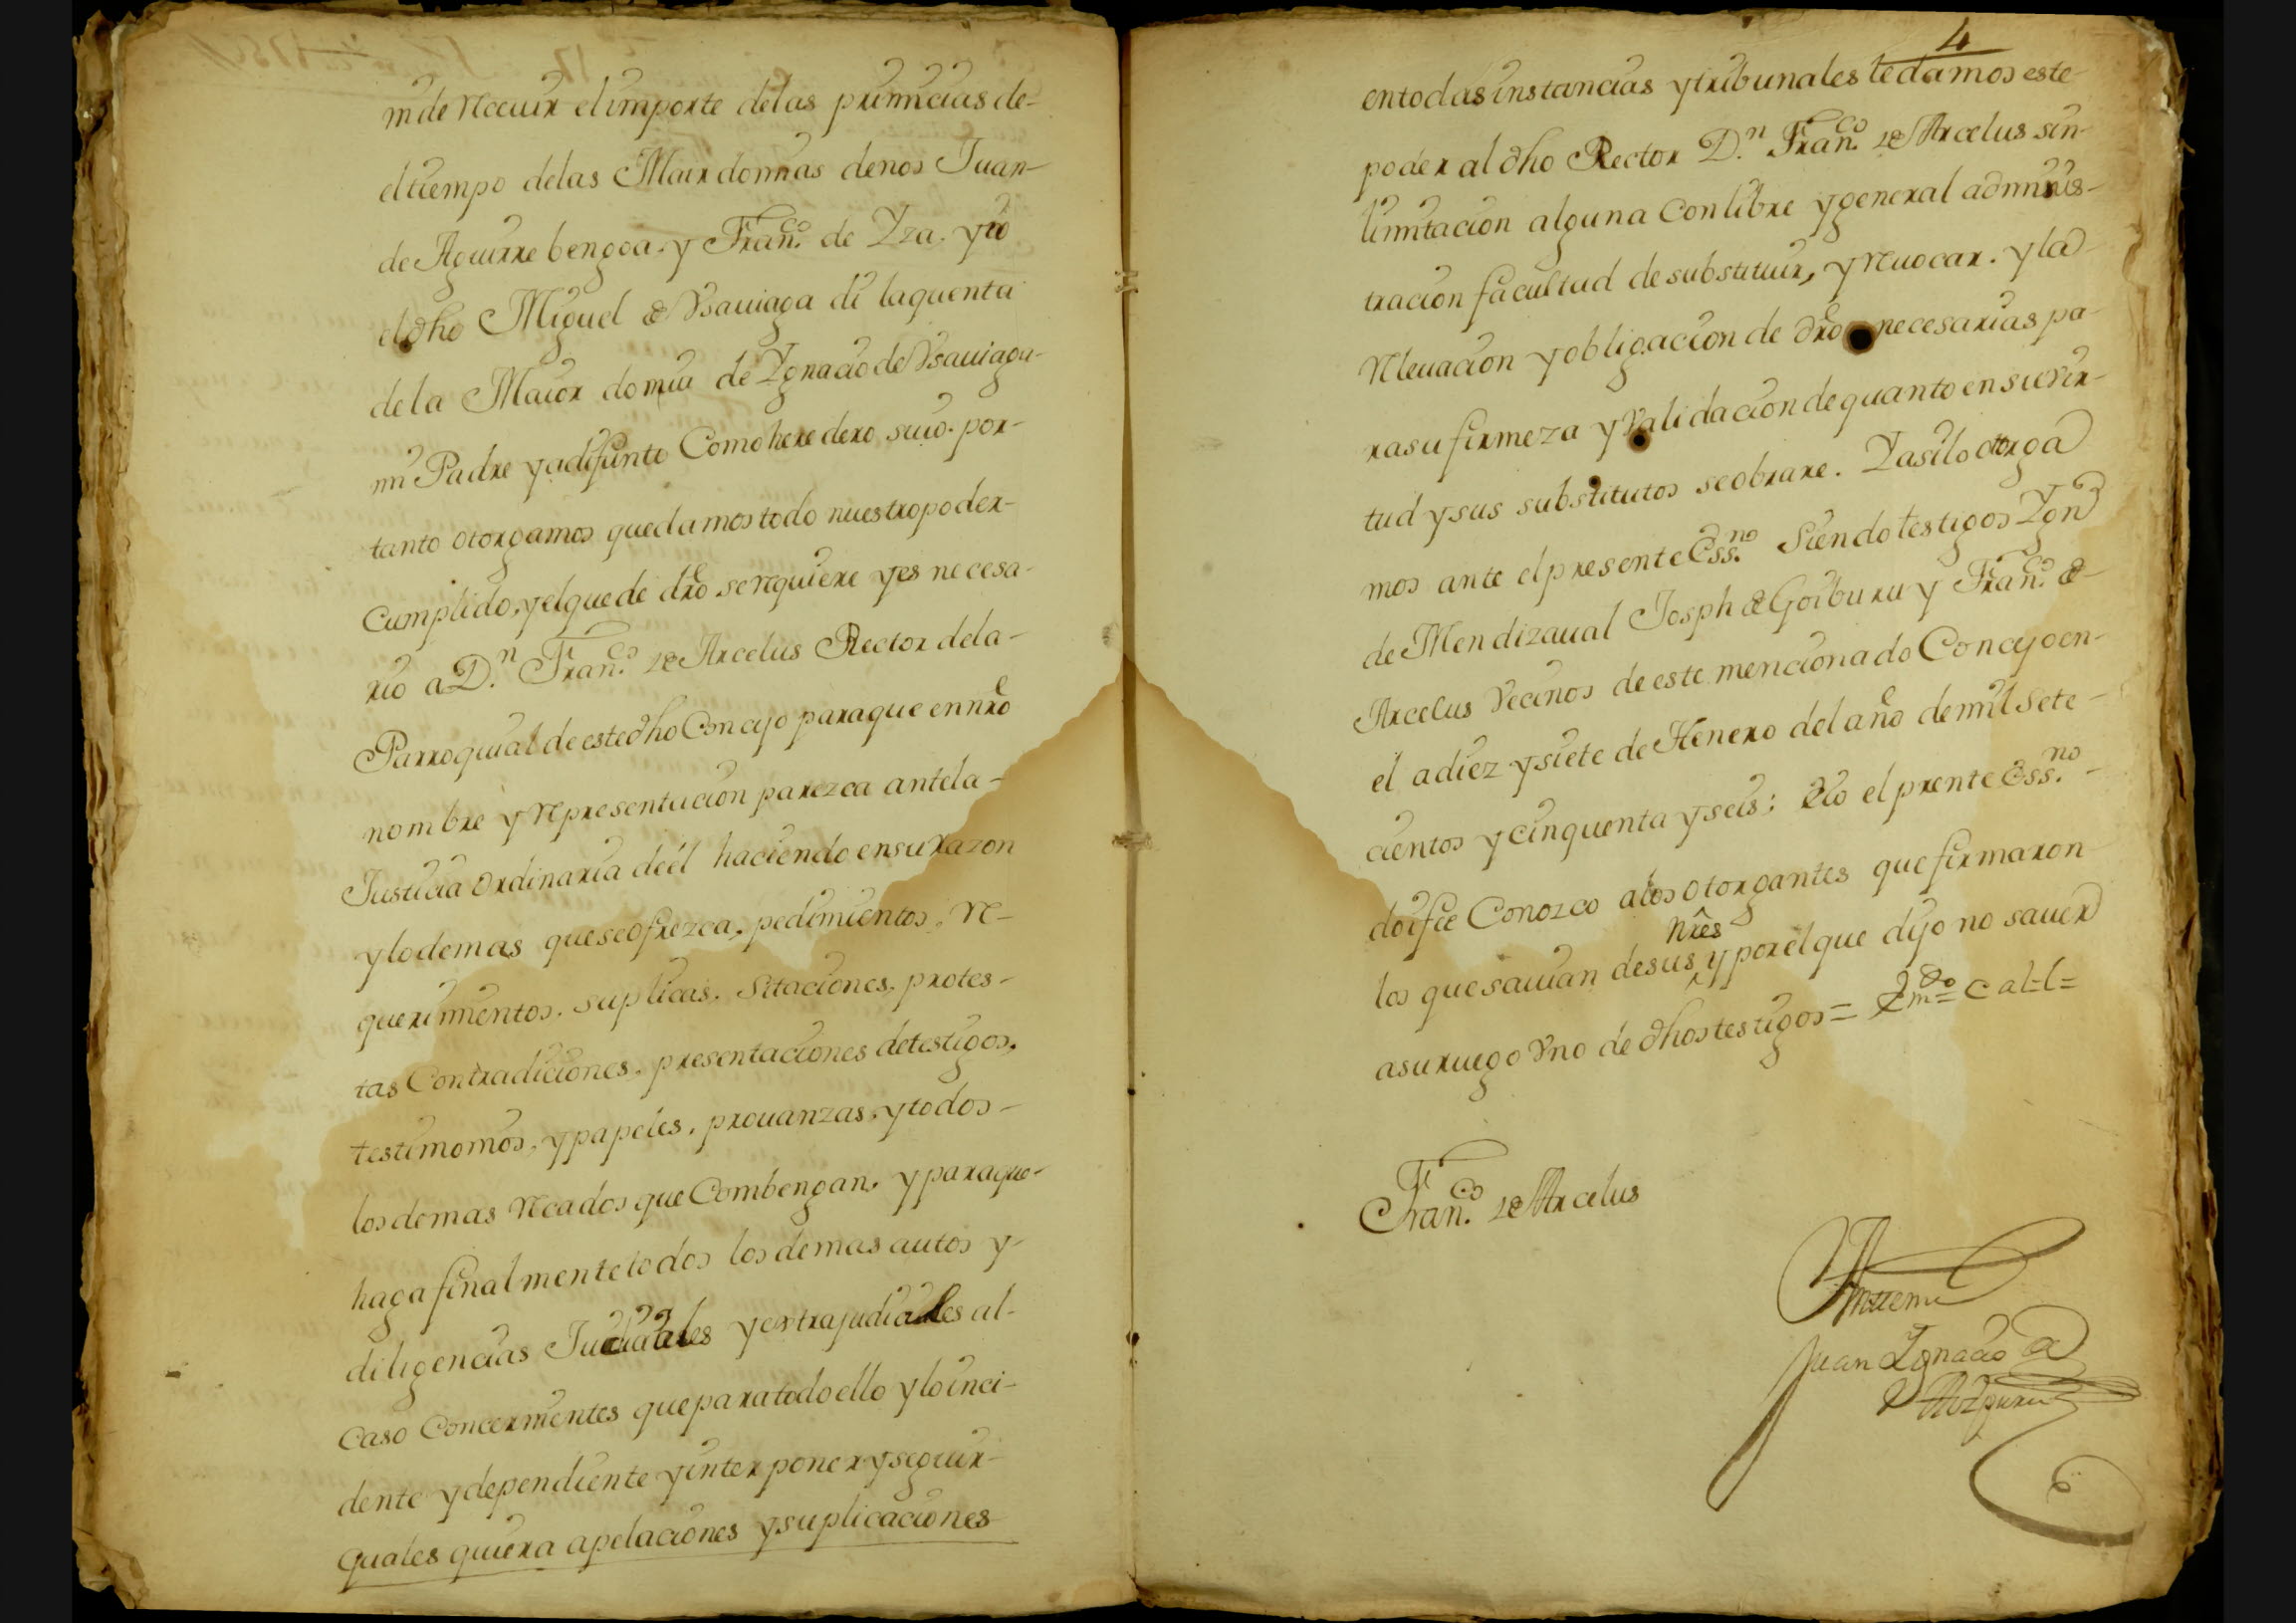 m de Reciuir el importe delas primicias de-
el tiempo delas Mairdomias denos Juan-
de Aguirrebengoa. y Fran.co de Yza. yio
el dho Miguel de Ysauiaga di laquenta
dela Maior domia de Ygnacio de Ysauiaga-
mi Padre yadifunto Como heredero suio. por-
tanto otorgamos quedamos todo nuestro poder-
Cumplido, yelque de dro se requiere yes necesa-
rio a D.n Fran.co de Arcelus Rector dela-
Parroquial de este dho Concejo paraque en nro
nombre y Representacion parezca antela-
Justicia ordinaria deél haciendo ensu razon
ylodemas queseofrezca, pedimientos, Re-
querimientos. suplicas. Sitaciones. protes-
tas Contradiciones. presentaciones detestigos.
testimonios, ypapeles, prouanzas, ytodos-
los demas Recados que Combengan. yparaque-
haga finalmente todos los demas autos y-
diligencias Judiciales yextrajudiciales al-
caso Concernientes queparatodoello yloinci-
dente ydependiente yinterponer yseguir-
quales quiera apelaciones ysuplicaciones
4
entodas instancias ytribunales le damos este-
poder al dho Rector D.n Fran.co de Arcelus sin-
limitacion alguna Conlibre ygeneral adminis-
tracion facultad desubstituir, y Reuocar. yla
Releuacion yobligacion de dro necesarias pa-
rasu firmeza yvalidacion dequanto ensu vir-
tud ysus substitutos seobrare. Yasilo otorga
mos ante elpresente Ess.no Siendo testigos Ygn
de Mendizaual Joseph de Goiburu y Fran.co de-
Arcelus Vecinos de este mencionado Concejo en-
el adiez ysiete de Henero del año demil Sete-
cientos ycinquenta yseis; Eio el prente Ess.no-
doifee Conozco alos otorgantes que firmaron
nres
los quesauian desus y porélque dijo no sauer
asuruego Vno de dhos testigos = Em.do = c al = l =
Fran.co de Arcelus
Antemi
Juan Ygnacio de
Aizpuru